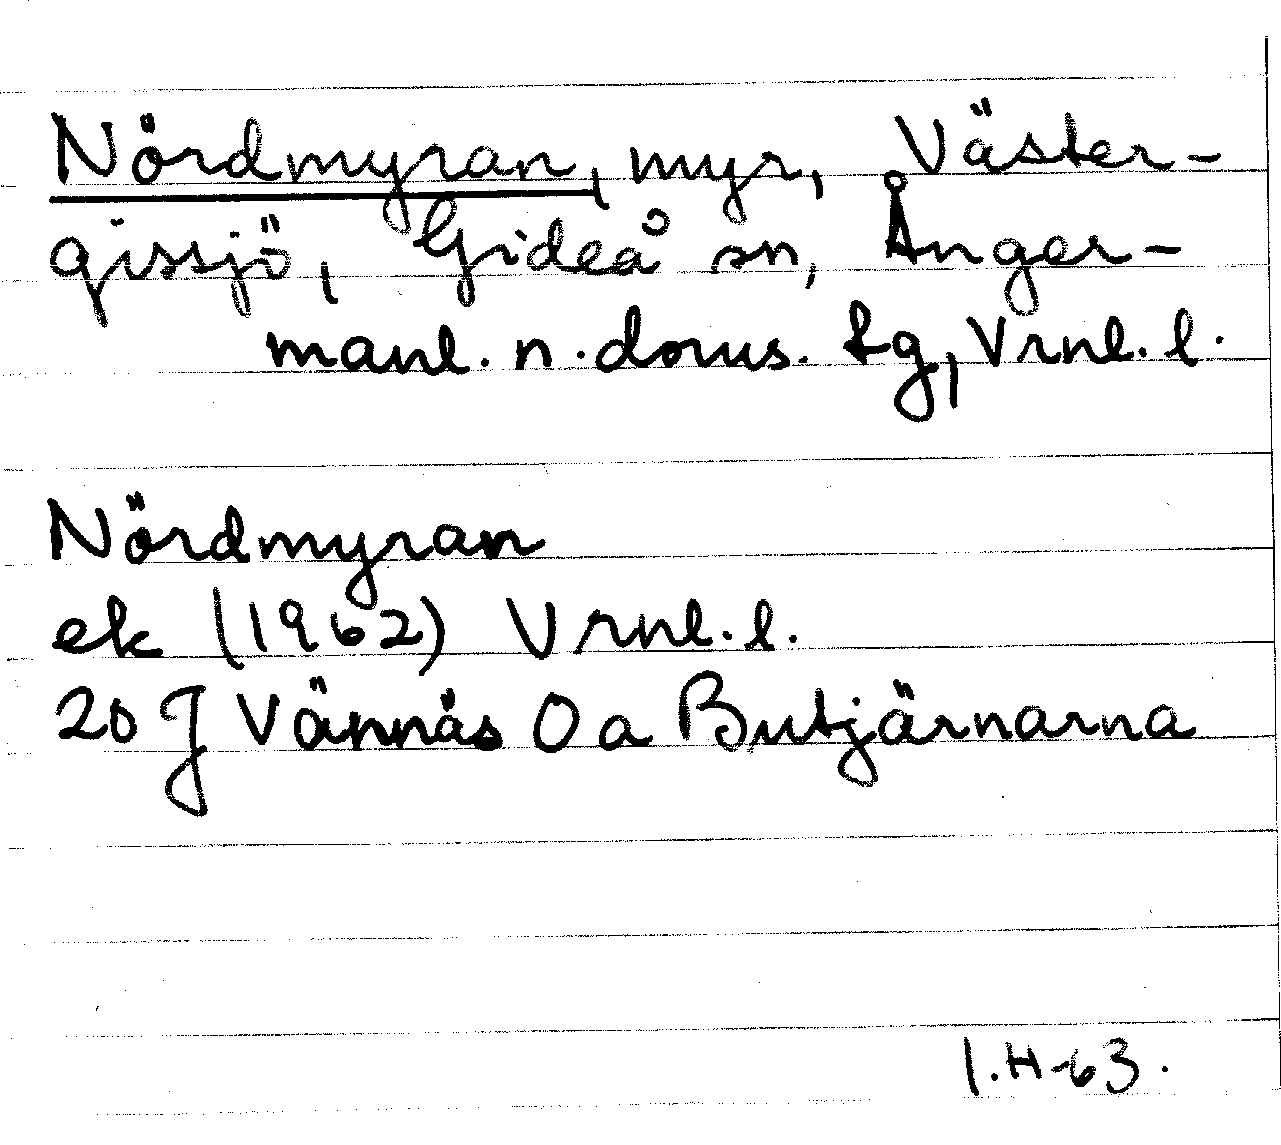 Nördmyran, myr, Väster-
gissjö, Gideå sn, Ånger-
manl. n. doms. tg, Vrnl. l.
Nördmyran
ek (1962) Vrnl. l.
20 J Vännäs 0 a Butjärnarna
I.H-63.